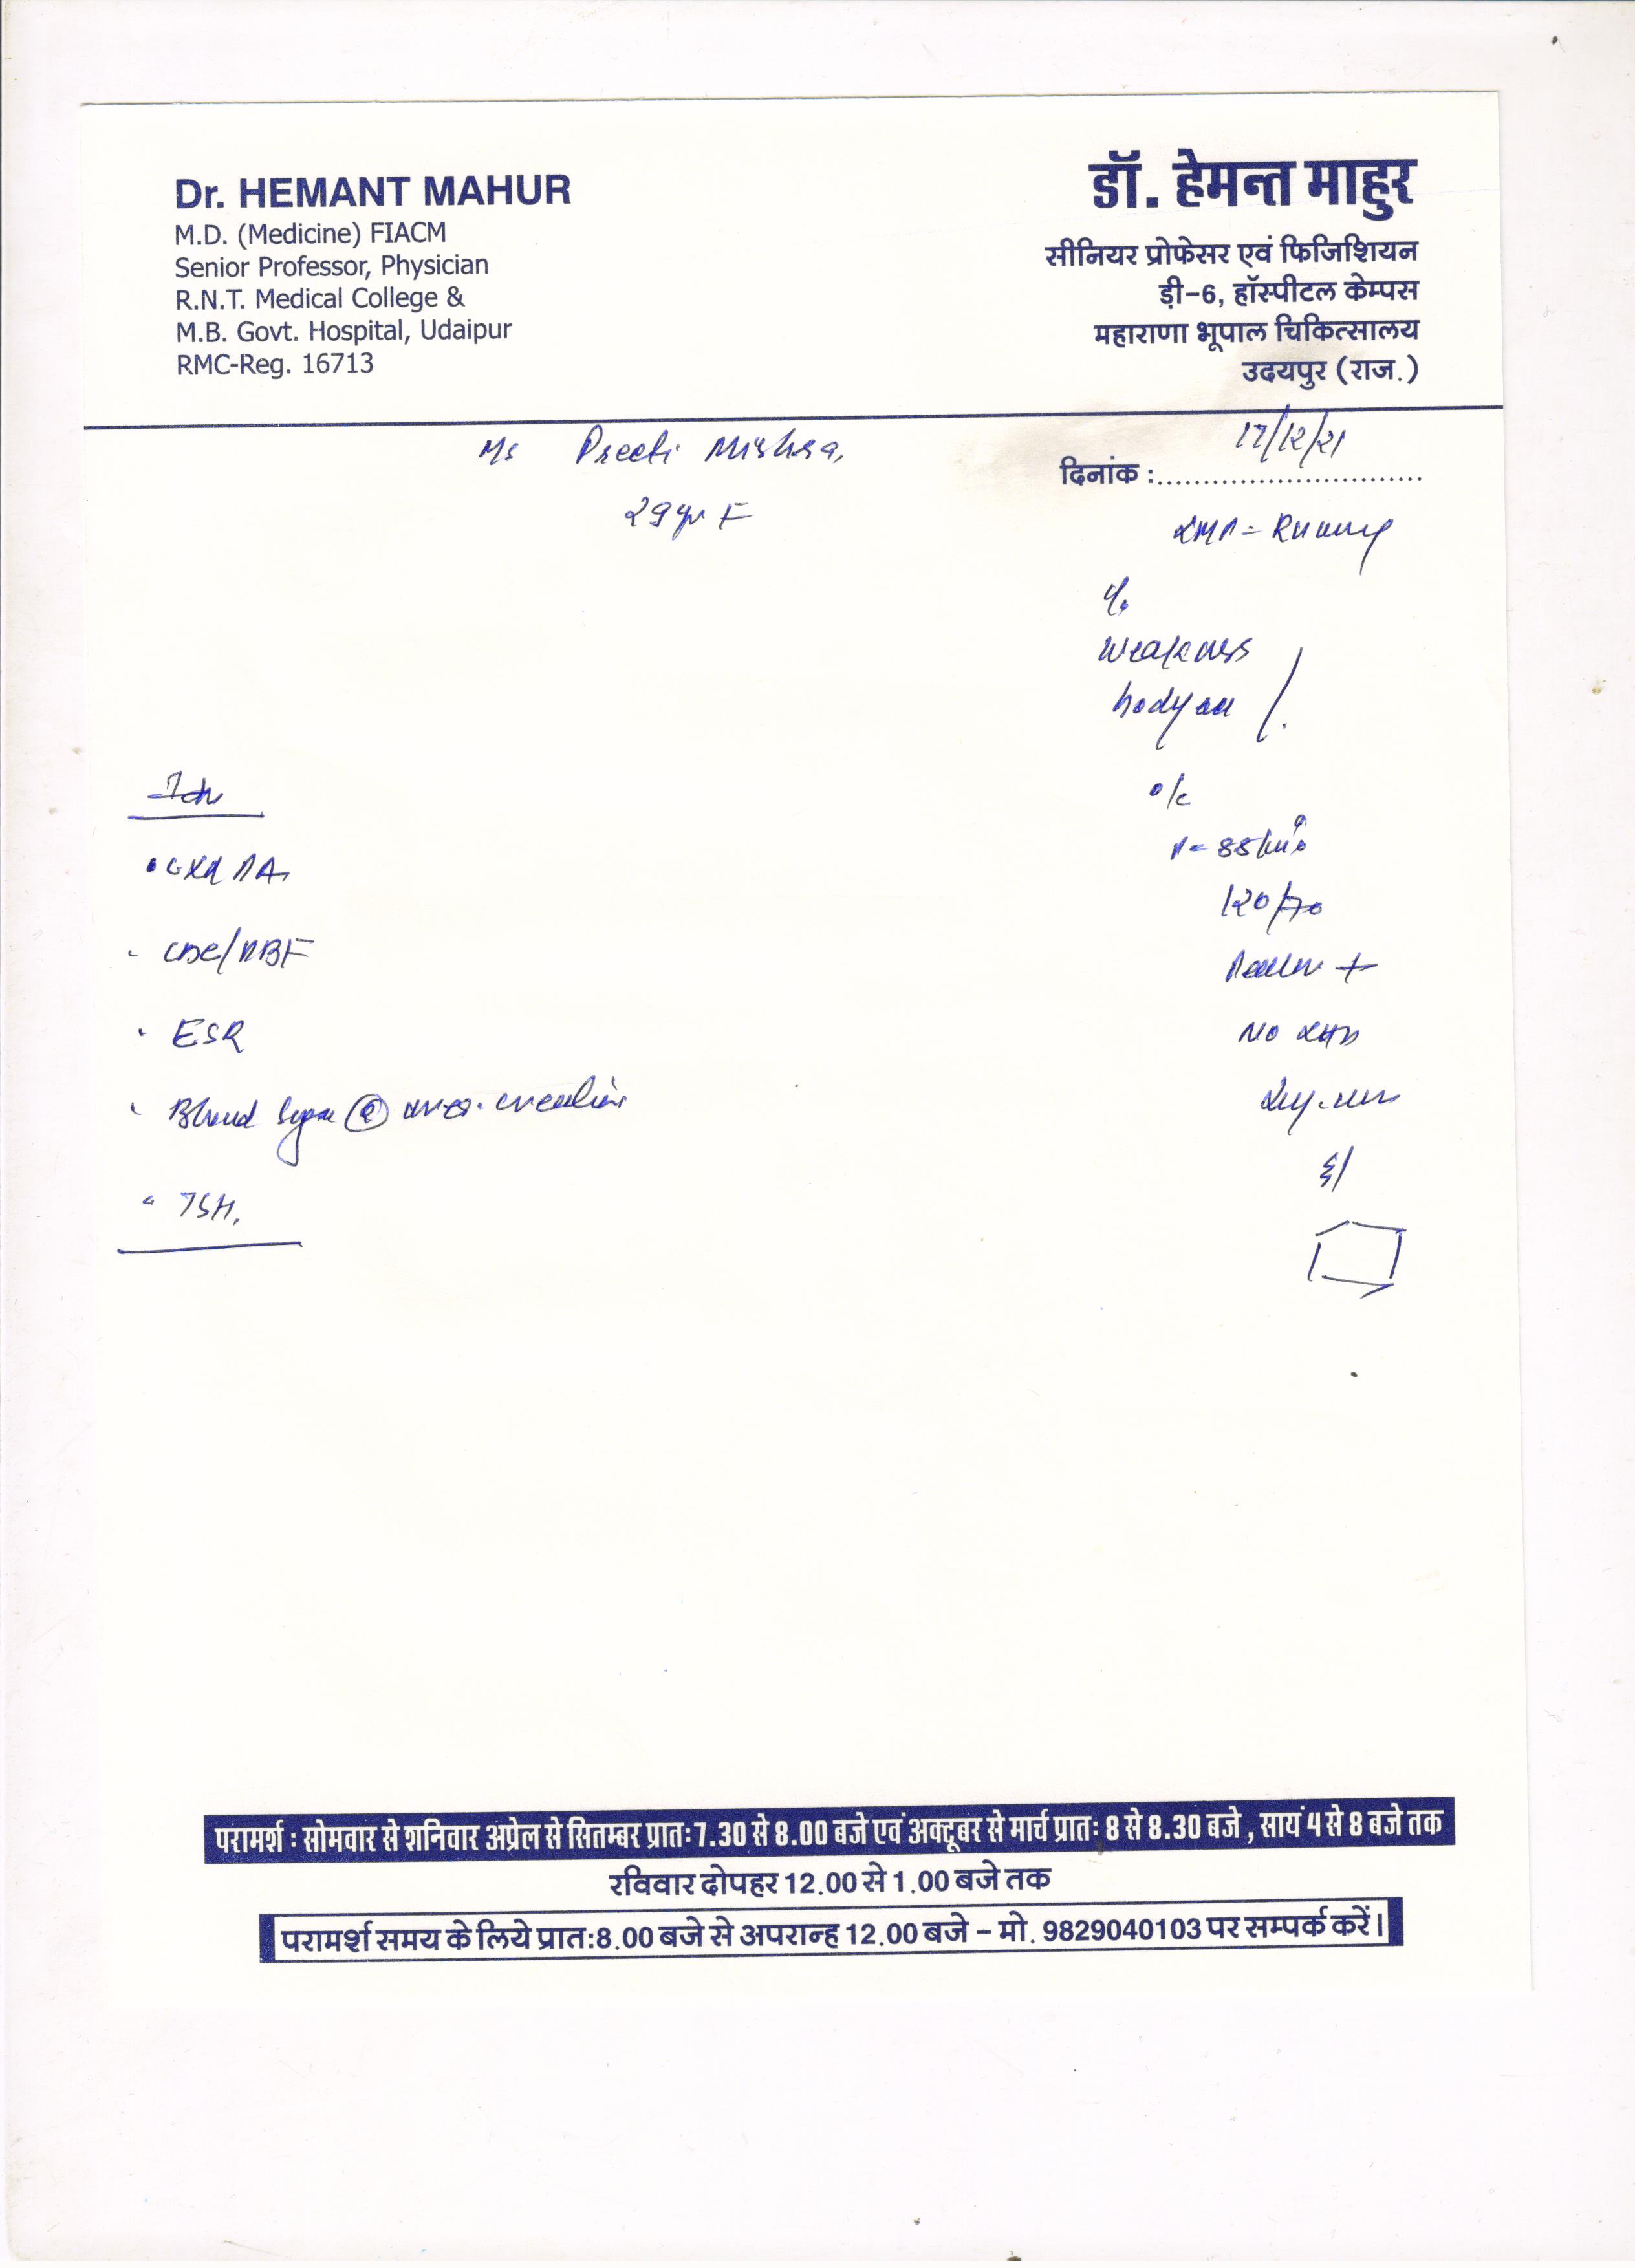 Dr. HEMANT MAHUR
M.D. (Medicine) FIACM
Senior Professor, Physician
R.N.T. Medical College &
M.B. Govt. Hospital, Udaipur
RMC-Reg. 16713
डॉ. हेमन्त माहुर
सीनियर प्रोफेसर एवं फिजिशियन
ड़ी-6, हॉस्पीटल केम्पस
महाराणा भूपाल चिकित्सालय
उदयपुर (राज.)
Ms Preeti Mishra,
29yr F
17/12/21
दिनांक :..............................
LMP = Running
c/o
Weakness
o/e
P = 88/min
120/70
Pallor +
No
CXR PA
CBC/PBF
ESR
Blood Sugar Urea. creatinine
TSH.
परामर्श : सोमवार से शनिवार अप्रेल से सितम्बर प्रातः 7.30 से 8.00 बजे एवं अक्टूबर से मार्च प्रातः 8 से 8.30 बजे , सायं 4 से 8 बजे तक
रविवार दोपहर 12.00 से 1.00 बजे तक
परामर्श समय के लिये प्रात:8.00 बजे से अपरान्ह 12.00 बजे – मो. 9829040103 पर सम्पर्क करें।